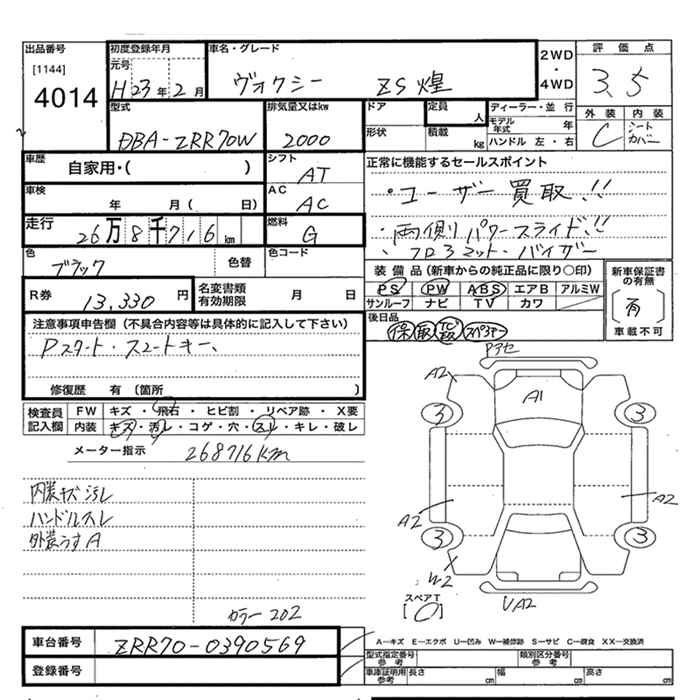 出品番号
[1144]
4014
初度登録年月
元号
H23年2月
車名・グレード
ヴォクシー ZS煌
2WD
・
4WD
評価点
3.5
外装 内装
C シートカバー
型式
DBA-ZRR70W
排気量又はkw
2000
ドア
形状
定員
人
積載
kg
ディーラー・並行
モデル年式 年
ハンドル 左・右
車歴
自家用・( )
シフト
AT
車検
年 月( 日)
AC
AC
走行
26万8千716km
燃料
G
色
ブラック
色替
色コード
R券
13,330円
名変書類有効期限
月 日
正常に機能するセールスポイント
・ユーザー買取!!
・両側パワースライド!!
・フロアマット・バイザー
装備品(新車からの純正品に限り○印)
PS PW ABS エアB アルミW
サンルーフ ナビ TV カワ
後日品
保 取
新車保証書の有無
有
車載不可
注意事項申告欄(不具合内容等は具体的に記入して下さい)
Pスタート・スマートキー、
修復歴 有(箇所 )
検査員記入欄
FW キズ・飛石・ヒビ割・リペア跡・X要
内装 キズ・汚レ・コゲ・穴・スレ・キレ・破レ
メーター指示 268716km
内装キズ汚レ
ハンドルスレ
外装うすA
カラー202
A2
A1
3
3
A2
A2
3
3
W2
UA2
スペアT
[ ]
車台番号 ZRR70-0390569
登録番号
A-キズ E-エクボ U-凹み W-補修跡 S-サビ C-腐食 XX-交換済
型式指定番号参考
類別区分番号参考
車庫証明用参考 長さ cm 幅 cm 高さ cm